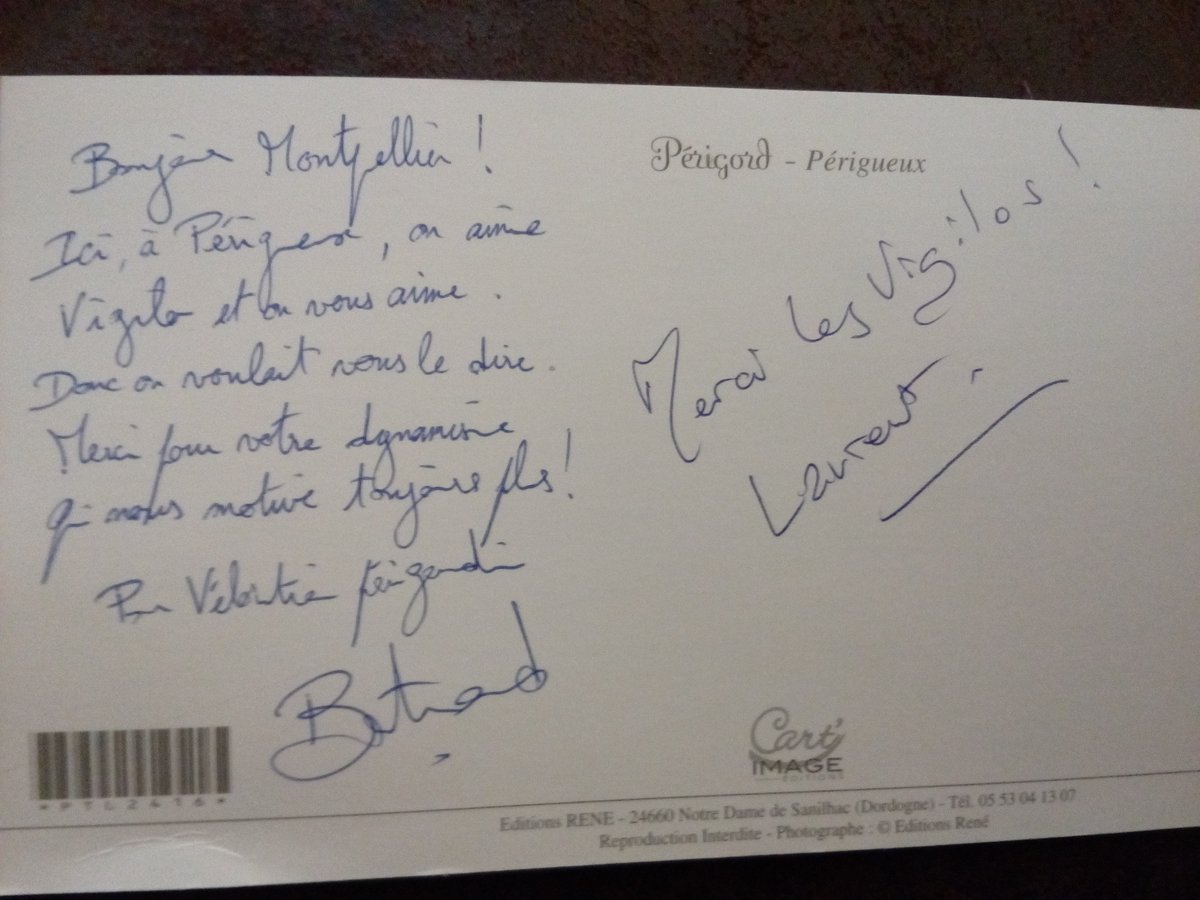 Bonjour Montpellier !
Ici, à Périgueux, on aime
Vigilo et on vous aime.
Donc on voulait vous le dire.
Merci pour votre dynamisme
qui nous motive toujours plus !
Pour Vélorution périgourdine
Bertrand
Périgord - Périgueux
Merci les Vigilos !
Laurent.
*PTL2416*
Cart' IMAGE
EDITIONS
Editions RENE - 24660 Notre Dame de Sanilhac (Dordogne) - Tél. 05 53 04 13 07
Reproduction Interdite - Photographe : © Editions René